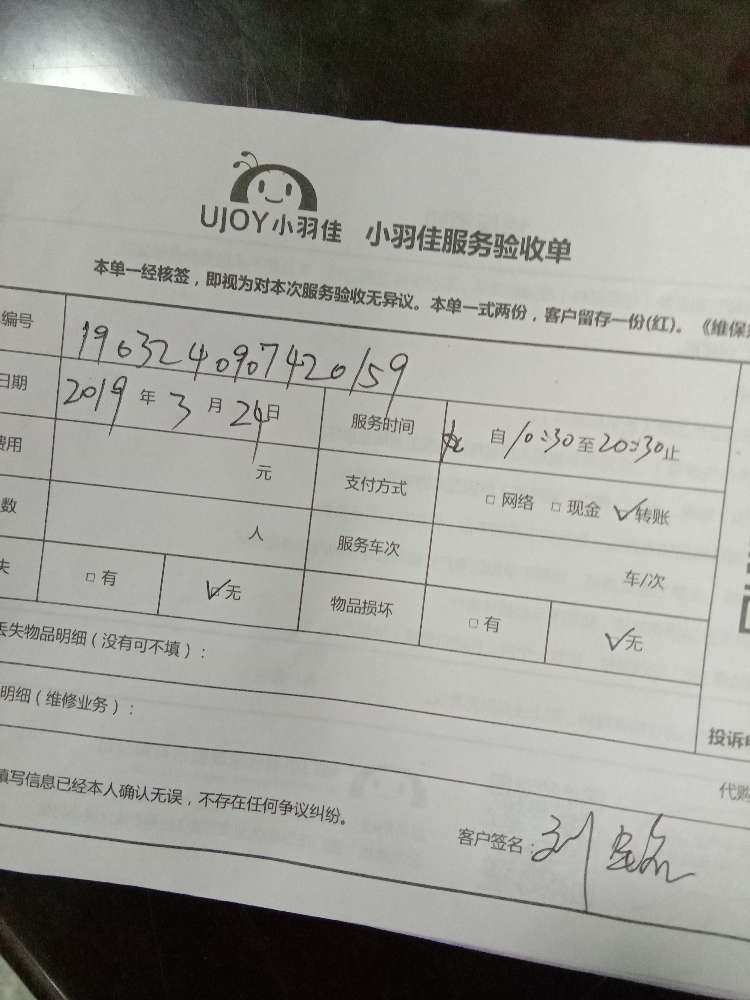 UJOY小羽佳 小羽佳服务验收单
本单一经核签，即视为对本次服务验收无异议。本单一式两份，客户留存一份(红)。《维保
编号 1903240907420159
日期 2019年3月24日 服务时间 自10:30至20:30止
费用 元 支付方式 □网络 □现金 ✓转账
数 人 服务车次 车/次
失 □有 ✓无 物品损坏 □有 ✓无
丢失物品明细（没有可不填）：
明细（维修业务）：
投诉电
代购
填写信息已经本人确认无误，不存在任何争议纠纷。
客户签名：刘